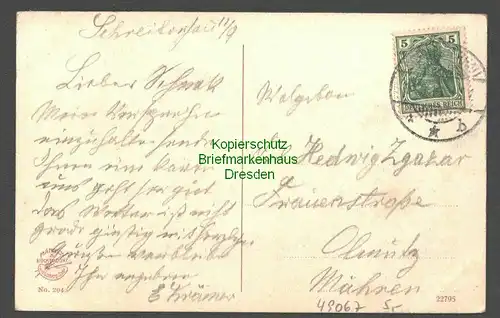 Schreiberhau 11/9
Lieber Schatz
Mein Versprechen
einzuhalten sende
Ihnen eine Karte
uns geht sehr gut
das Wetter ist nicht
grade günstig
Grüsse
Ihr ergebener
E Krämer
Wolgeboren
Hedwig Zgazar
Frauenstraße
Olmütz
Mähren
49067
5
5
DEUTSCHES REICH
* b
Kopierschutz
Briefmarkenhaus
Dresden
No. 204
22795